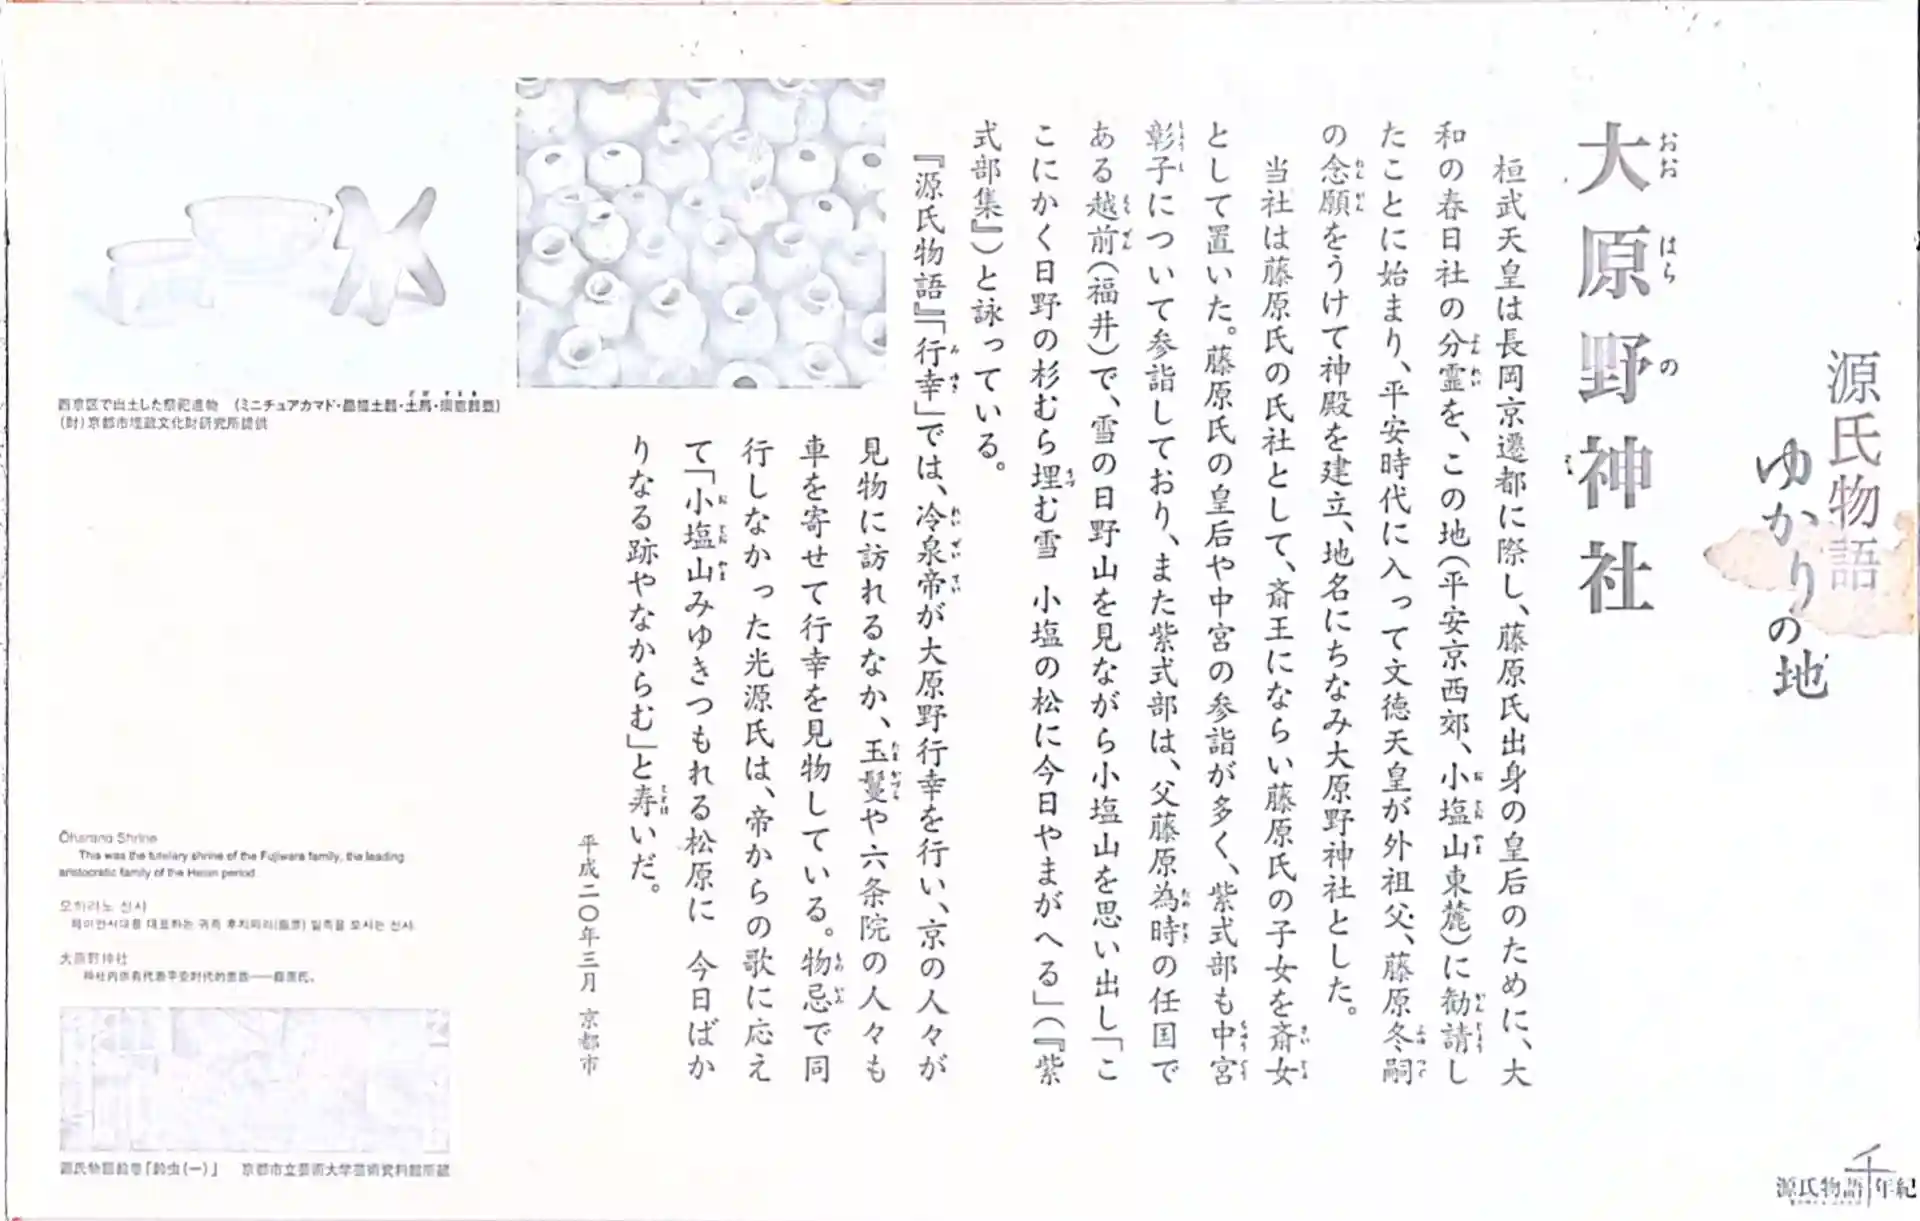 源氏物語
ゆかりの地
大原野神社
おお はら の
桓武天皇は長岡京遷都に際し、藤原氏出身の皇后のために、大
和の春日社の分霊を、この地(平安京西郊、小塩山東麓)に勧請し
たことに始まり、平安時代に入って文徳天皇が外祖父、藤原冬嗣
の念願をうけて神殿を建立、地名にちなみ大原野神社とした。
当社は藤原氏の氏社として、斎王にならい藤原氏の子女を斎女
として置いた。藤原氏の皇后や中宮の参詣が多く、紫式部も中宮
彰子について参詣しており、また紫式部は、父藤原為時の任国で
ある越前(福井)で、雪の日野山を見ながら小塩山を思い出し「こ
こにかく日野の杉むら埋む雪 小塩の松に今日やまがへる」(『紫
式部集』)と詠っている。
『源氏物語』「行幸」では、冷泉帝が大原野行幸を行い、京の人々が
見物に訪れるなか、玉鬘や六条院の人々も
車を寄せて行幸を見物している。物忌で同
行しなかった光源氏は、帝からの歌に応え
て「小塩山みゆきつもれる松原に 今日ばか
りなる跡やなからむ」と寿いだ。
平成二〇年三月 京都市
西京区で出土した祭祀遺物 (ミニチュアカマド・墨描土器・土馬・須恵器壺)
(財)京都市埋蔵文化財研究所提供
Ōharano Shrine
This was the tutelary shrine of the Fujiwara family, the leading
aristocratic family of the Heian period.
오하라노 신사
헤이안시대를 대표하는 귀족 후지와라(藤原) 일족을 모시는 신사.
大原野神社
神社内供有代表平安时代的贵族——藤原氏。
源氏物語絵巻「鈴虫(一)」 京都市立芸術大学芸術資料館所蔵
源氏物語千年紀